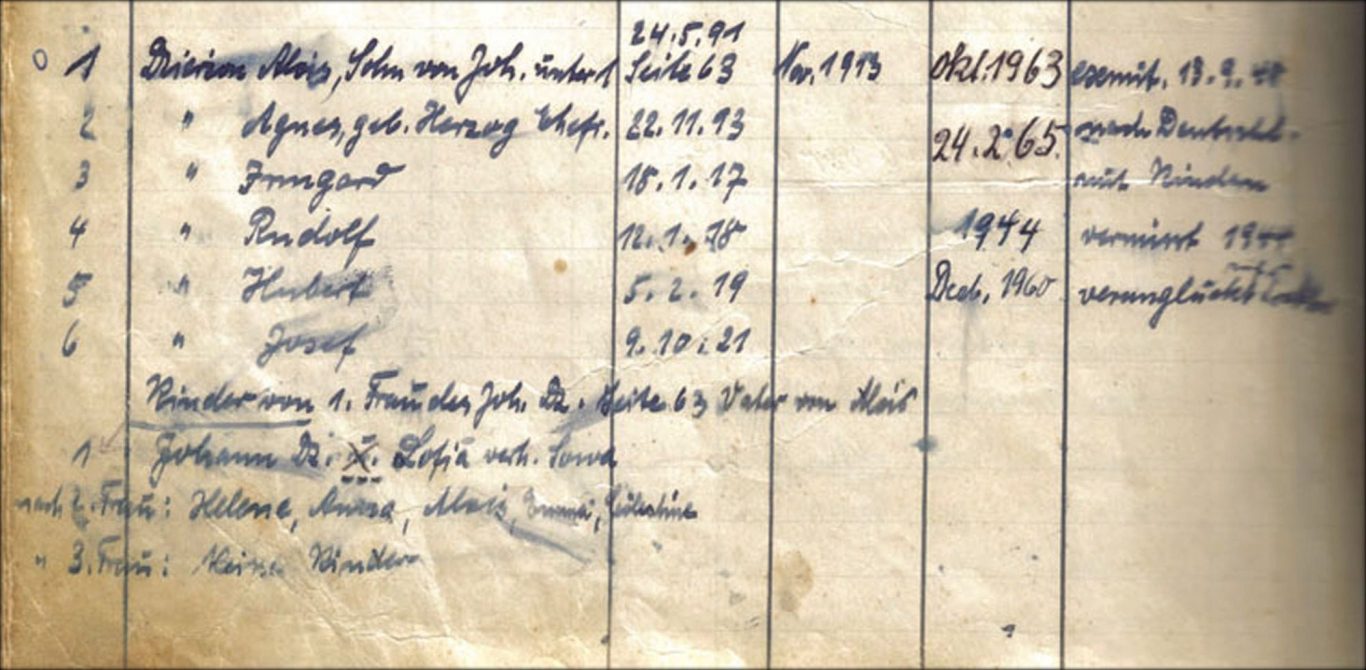 24.5.91
0 1 Dzierzon Alois, Sohn von Joh. unter 1 Seite 63 Nov. 1913 Okt. 1963 exmit. 13.9.
2 " Agnes, geb. Herzog Ehefr. 22.11.93 24.2.65. nach Deutschl.
3 " Irmgard 18.1.17 mit Kindern
4 " Rudolf 12.1.18 1944 vermisst
5 " Hubert 5.2.19 Dez. 1960 verunglückt
6 " Josef 9.10.21
Kinder von 1. Frau des Joh. Dz. Seite 63 Vater von Alois
1 Johann Dz. u. Sofia verh. Sowa
nach 2. Frau: Helene, Anna, Alois,
" 3. Frau: Keine Kinder